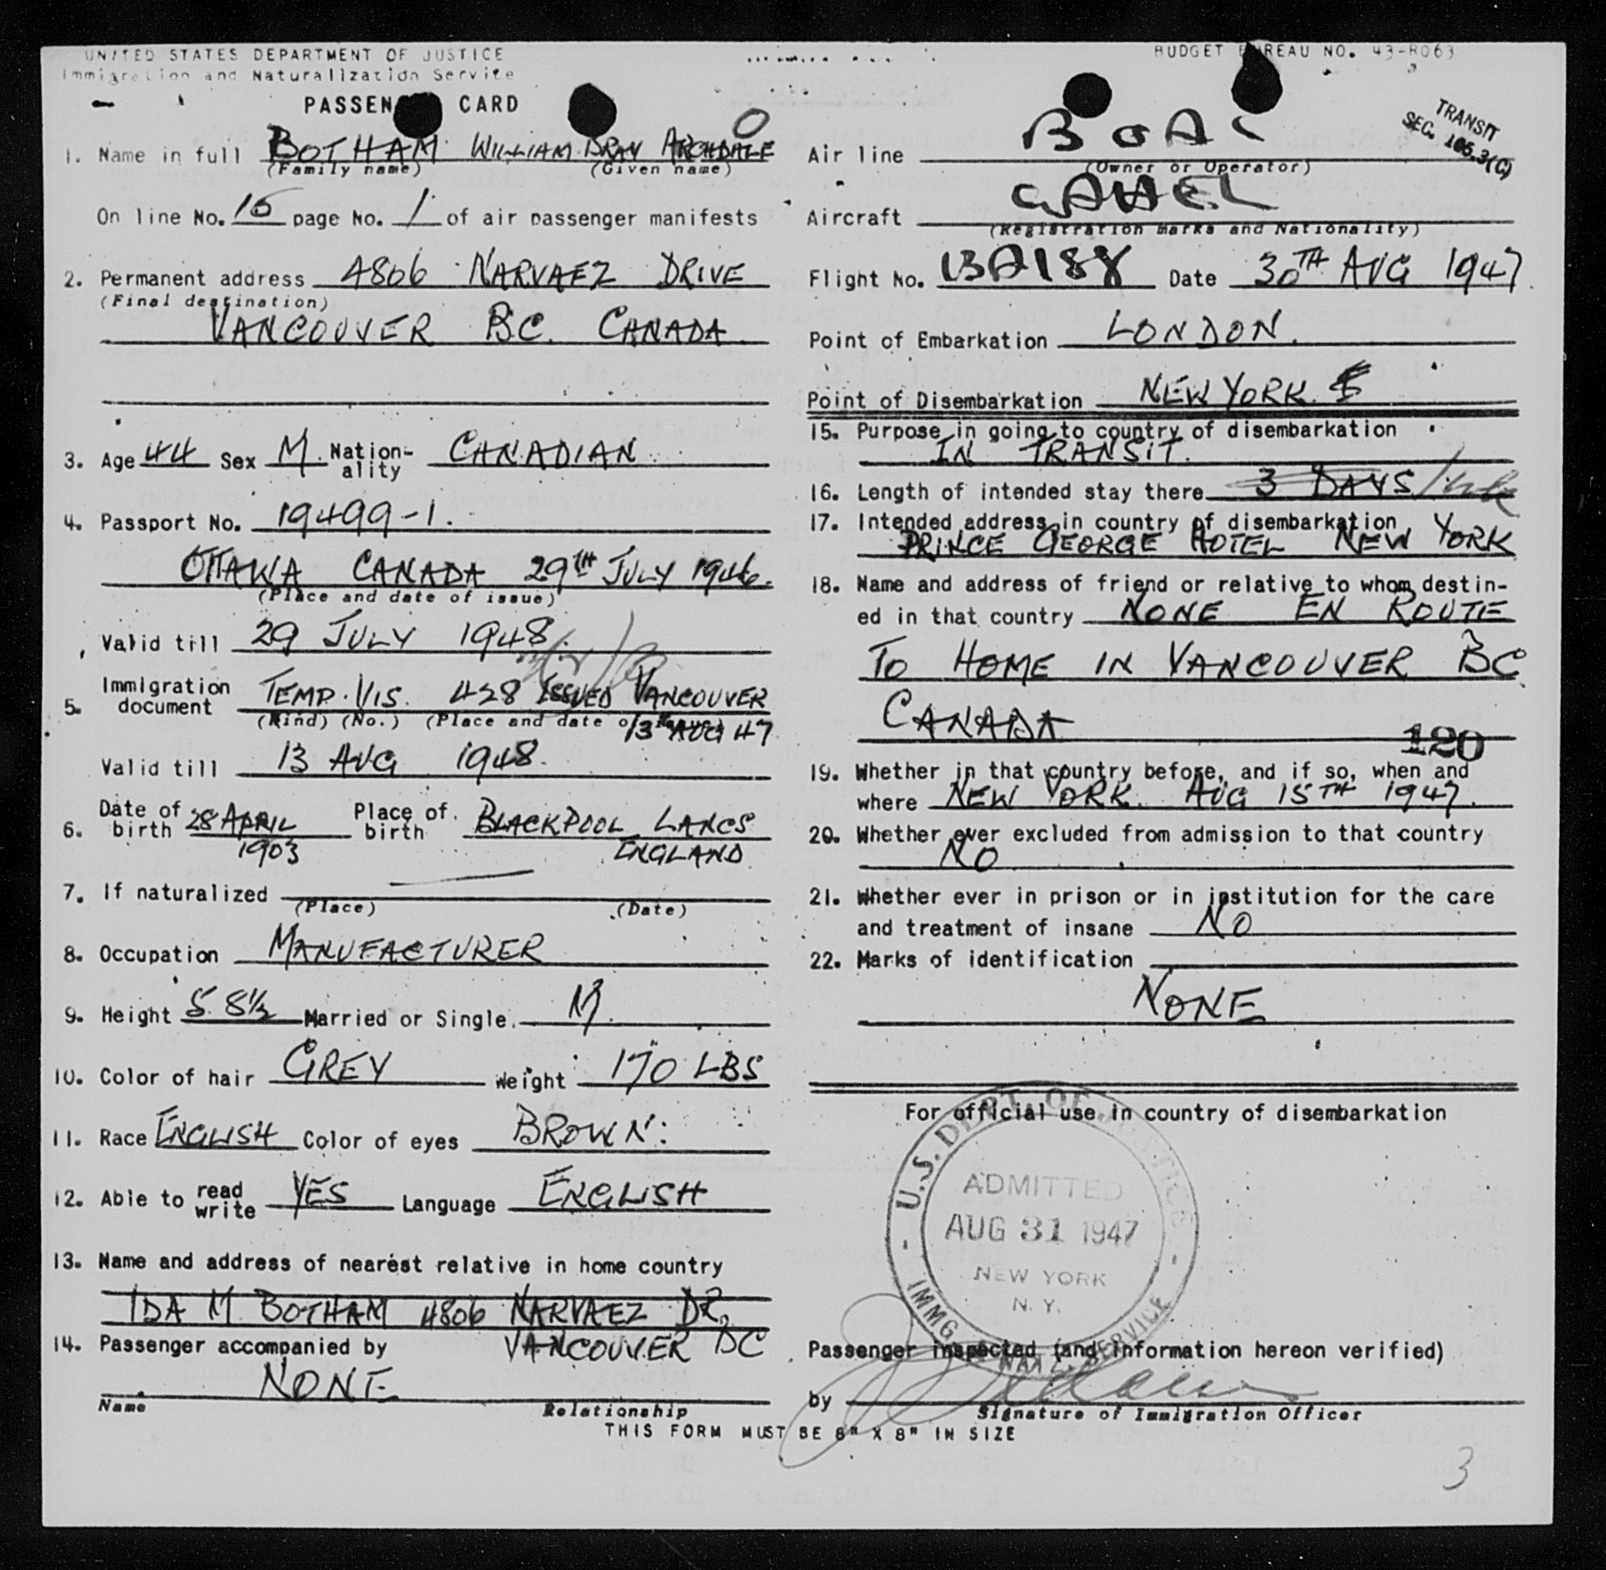 UNITED STATES DEPARTMENT OF JUSTICE
Immigration and Naturalization Service
BUDGET BUREAU NO. 43-R063
PASSENGER CARD
TRANSIT
SEC. 165.3(C)
1. Name in full BOTHAM WILLIAM BRAY ARCHDALE
(Family name) (Given name)
On line No. 15 page No. 1 of air passenger manifests
2. Permanent address 4806 NARVAEZ DRIVE
(Final destination)
VANCOUVER BC. CANADA
3. Age 44 Sex M. Nation-ality CANADIAN
4. Passport No. 19499-1.
OTTAWA CANADA 29TH JULY 1946.
(Place and date of issue)
Valid till 29 JULY 1948.
5. Immigration document TEMP. VIS. 428 ISSUED VANCOUVER
(Kind) (No.) (Place and date of 13TH AUG 47
Valid till 13 AUG 1948.
6. Date of birth 28 APRIL 1903 Place of birth BLACKPOOL LANCS ENGLAND
7. If naturalized
(Place) (Date)
8. Occupation MANUFACTURER
9. Height 5. 8½ Married or Single. M.
10. Color of hair GREY Weight 170 LBS
11. Race ENGLISH Color of eyes BROWN.
12. Able to read write YES Language ENGLISH
13. Name and address of nearest relative in home country
IDA M BOTHAM 4806 NARVAEZ DR,
VANCOUVER BC
14. Passenger accompanied by
NONE
Name Relationship
Air line BOAC
(Owner or Operator)
Aircraft GAHEL
(Registration marks and Nationality)
Flight No. BA188 Date 30TH AUG 1947.
Point of Embarkation LONDON.
Point of Disembarkation NEW YORK.
15. Purpose in going to country of disembarkation
IN TRANSIT.
16. Length of intended stay there 3 DAYS
17. Intended address in country of disembarkation
PRINCE GEORGE HOTEL NEW YORK
18. Name and address of friend or relative to whom destin-
ed in that country NONE EN ROUTE
TO HOME IN VANCOUVER BC
CANADA
120
19. Whether in that country before, and if so, when and
where NEW YORK. AUG 15TH 1947.
20. Whether ever excluded from admission to that country
NO
21. Whether ever in prison or in institution for the care
and treatment of insane NO
22. Marks of identification
NONE
For official use in country of disembarkation
U.S. DEPT. OF JUSTICE
ADMITTED
AUG 31 1947
NEW YORK
N. Y.
IMMG. & NATZ. SERVICE
Passenger inspected (and information hereon verified)
by
Signature of Immigration Officer
THIS FORM MUST BE 8" X 8" IN SIZE
3